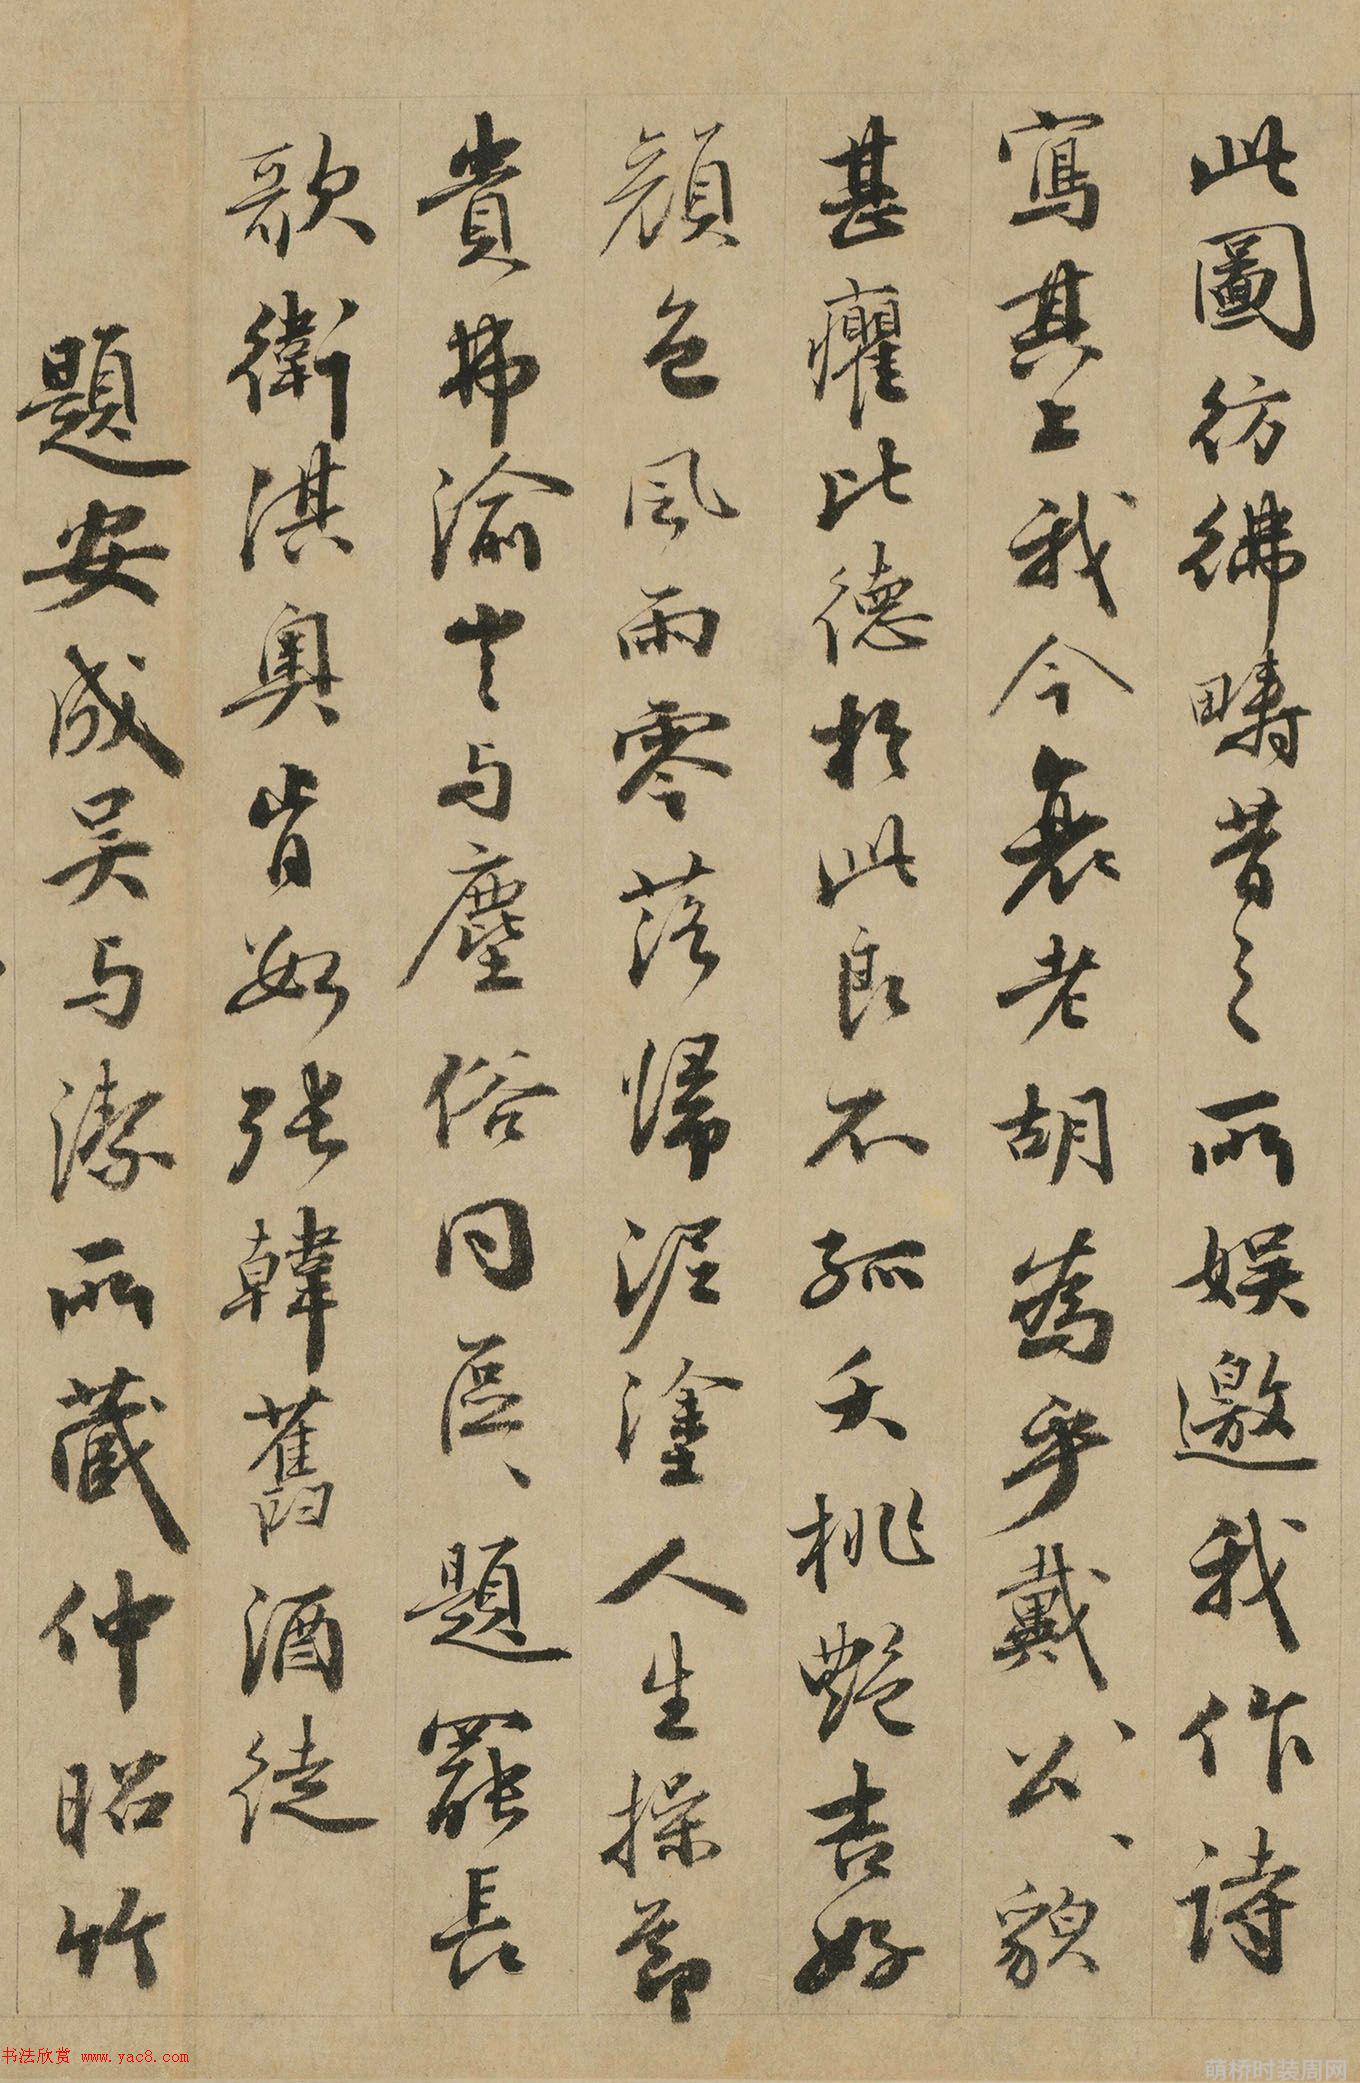 此圖彷彿疇昔之所娛邀我作詩
寫其上我今衰老胡為乎戴、公、貌
甚癯比德於此良不孤夭桃艷吉好
顏色風雨零落歸泥塗人生操節
貴弗渝与塵俗同區、題罷長
歌衛淇奧肯數張韓舊酒徒
題安成吳与潔所藏仲昭竹
书法欣赏 www.yac8.com
萌桥时装周网